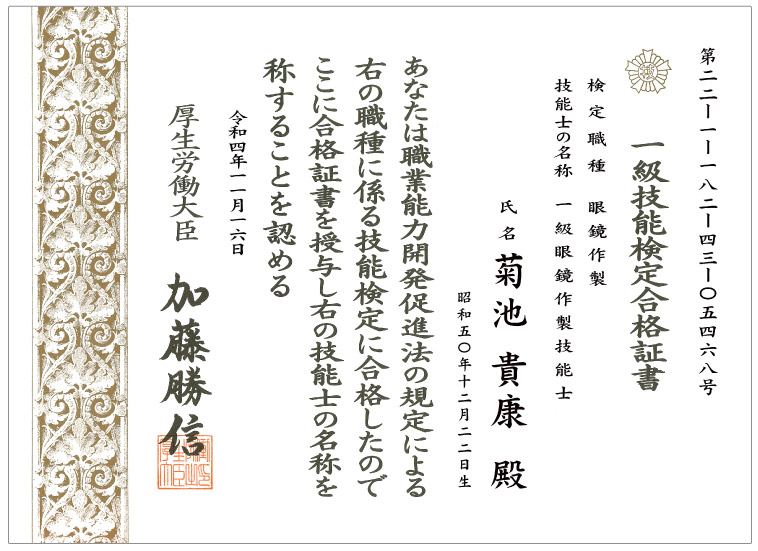 第二二ー一ー一八二ー四三ー〇五四六八号
一級技能検定合格証書
検定職種 眼鏡作製
技能士の名称 一級眼鏡作製技能士
氏名 菊池 貴康 殿
昭和五〇年十二月二二日生
あなたは職業能力開発促進法の規定による
右の職種に係る技能検定に合格したので
ここに合格証書を授与し右の技能士の名称を
称することを認める
令和四年一一月一六日
厚生労働大臣 加藤勝信